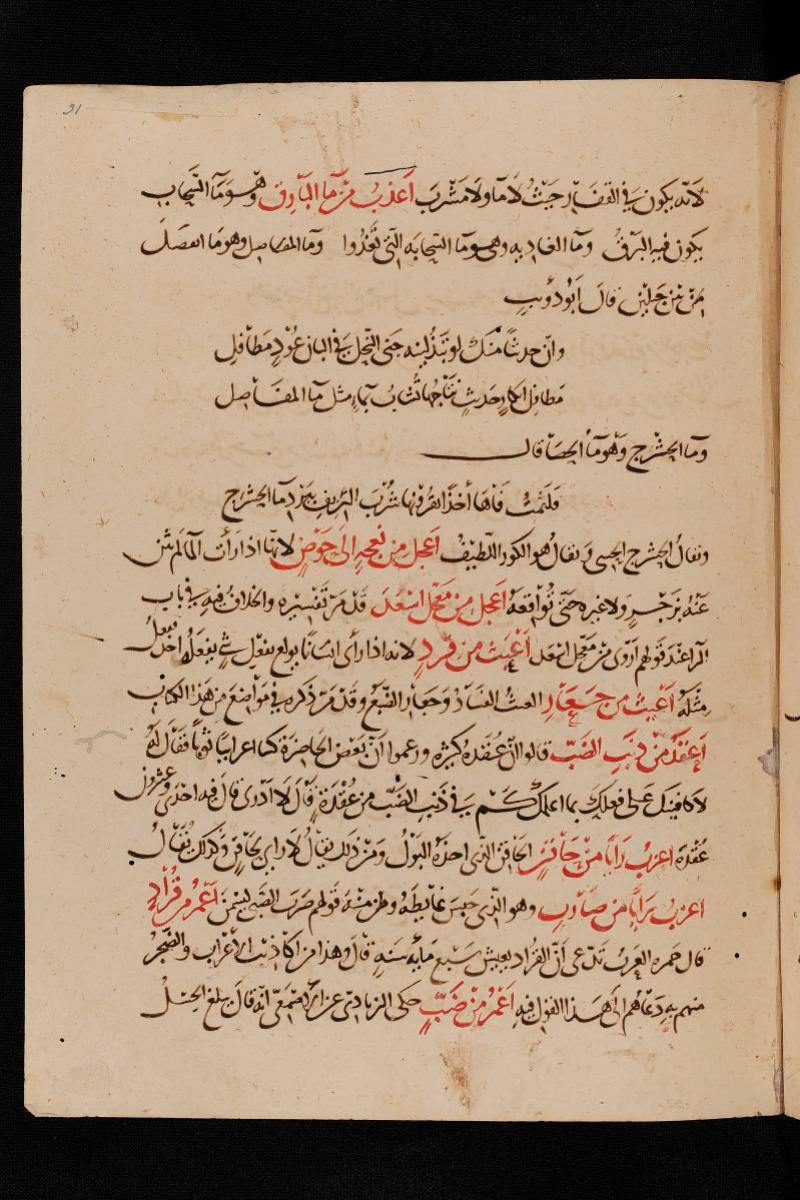 91
لانه يكون في القفار حيث لا ماء ولا مشرب أعذب من ما البارق وهو ما السحاب
يكون فيه البرق وما الغاديه وهو ما السحابه التي تغدوا وما المفاصل وهو ما الفصل
من بين جبلين قال ابو ذويب
وان حديثا منك لو تبذلينه جنى النحل في البان عوذ مطافل
مطافل ابكار حديث نتاجها تشاب بماء مثل ما المفاصل
وما الحشرج وهو ما الحصا قال
فلثمت فاها آخذا بقرونها شرب النزيف ببرد ما الحشرج
ويقال الحشرج الحسى ويقال هو الكوز اللطيف أعجل من نعجه الى حوض لانها اذا رأت الما لم تنثن
عنه بزجر ولا غيره حتى تواقعه أعجل من معجل اسعد قد مر تفسيره والخلاف فيه في باب
الرا عند قولهم اروى من معجل اسعد أعبث من قرد لانه اذا رأى انسانا يولع بفعل شي يفعله اخذ يفعل
مثله أعيث من جعار العيث الفساد وجعار الضبع وقد مر ذكره في مواضع من هذا الكتاب
أعقد من ذنب الضب قالوا لان عقده كثيره وزعموا أن بعض الحاضرة كسا اعرابيا ثوبا فقال له
لاكافينك على فعلك بما اعلمك كم في ذنب الضب من عقدة قال لا ادرى قال فيه احدى وعشرون
عقدة اعزب رايا من حاقن الحاقن الذى اخذه البول ومن ذلك يقال لا راى لحاقن وكذلك يقال
اعزب رايا من صارب وهو الذى حبس غايطه ومنه قولهم صرب الصبى ليسمن أعمر من قراد
قال حمزه العرب تدعى أن القراد يعيش سبع مأيه سنه قال وهذا من اكاذيب الاعراب والضجر
منهم به دعاهم الى هذا القول فيه أعمر من ضب حكى الزيادى عن الاصمعى انه قال يبلغ الحسل